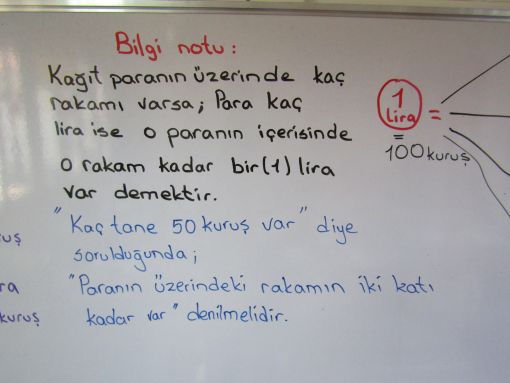 Bilgi notu:
Kağıt paranın üzerinde kaç
rakamı varsa; Para kaç
lira ise o paranın içerisinde
o rakam kadar bir(1) lira
var demektir.
"Kaç tane 50 kuruş var" diye
sorulduğunda;
"Paranın üzerindeki rakamın iki katı
kadar var" denilmelidir.
1
Lira =
=
100 kuruş
kuruş